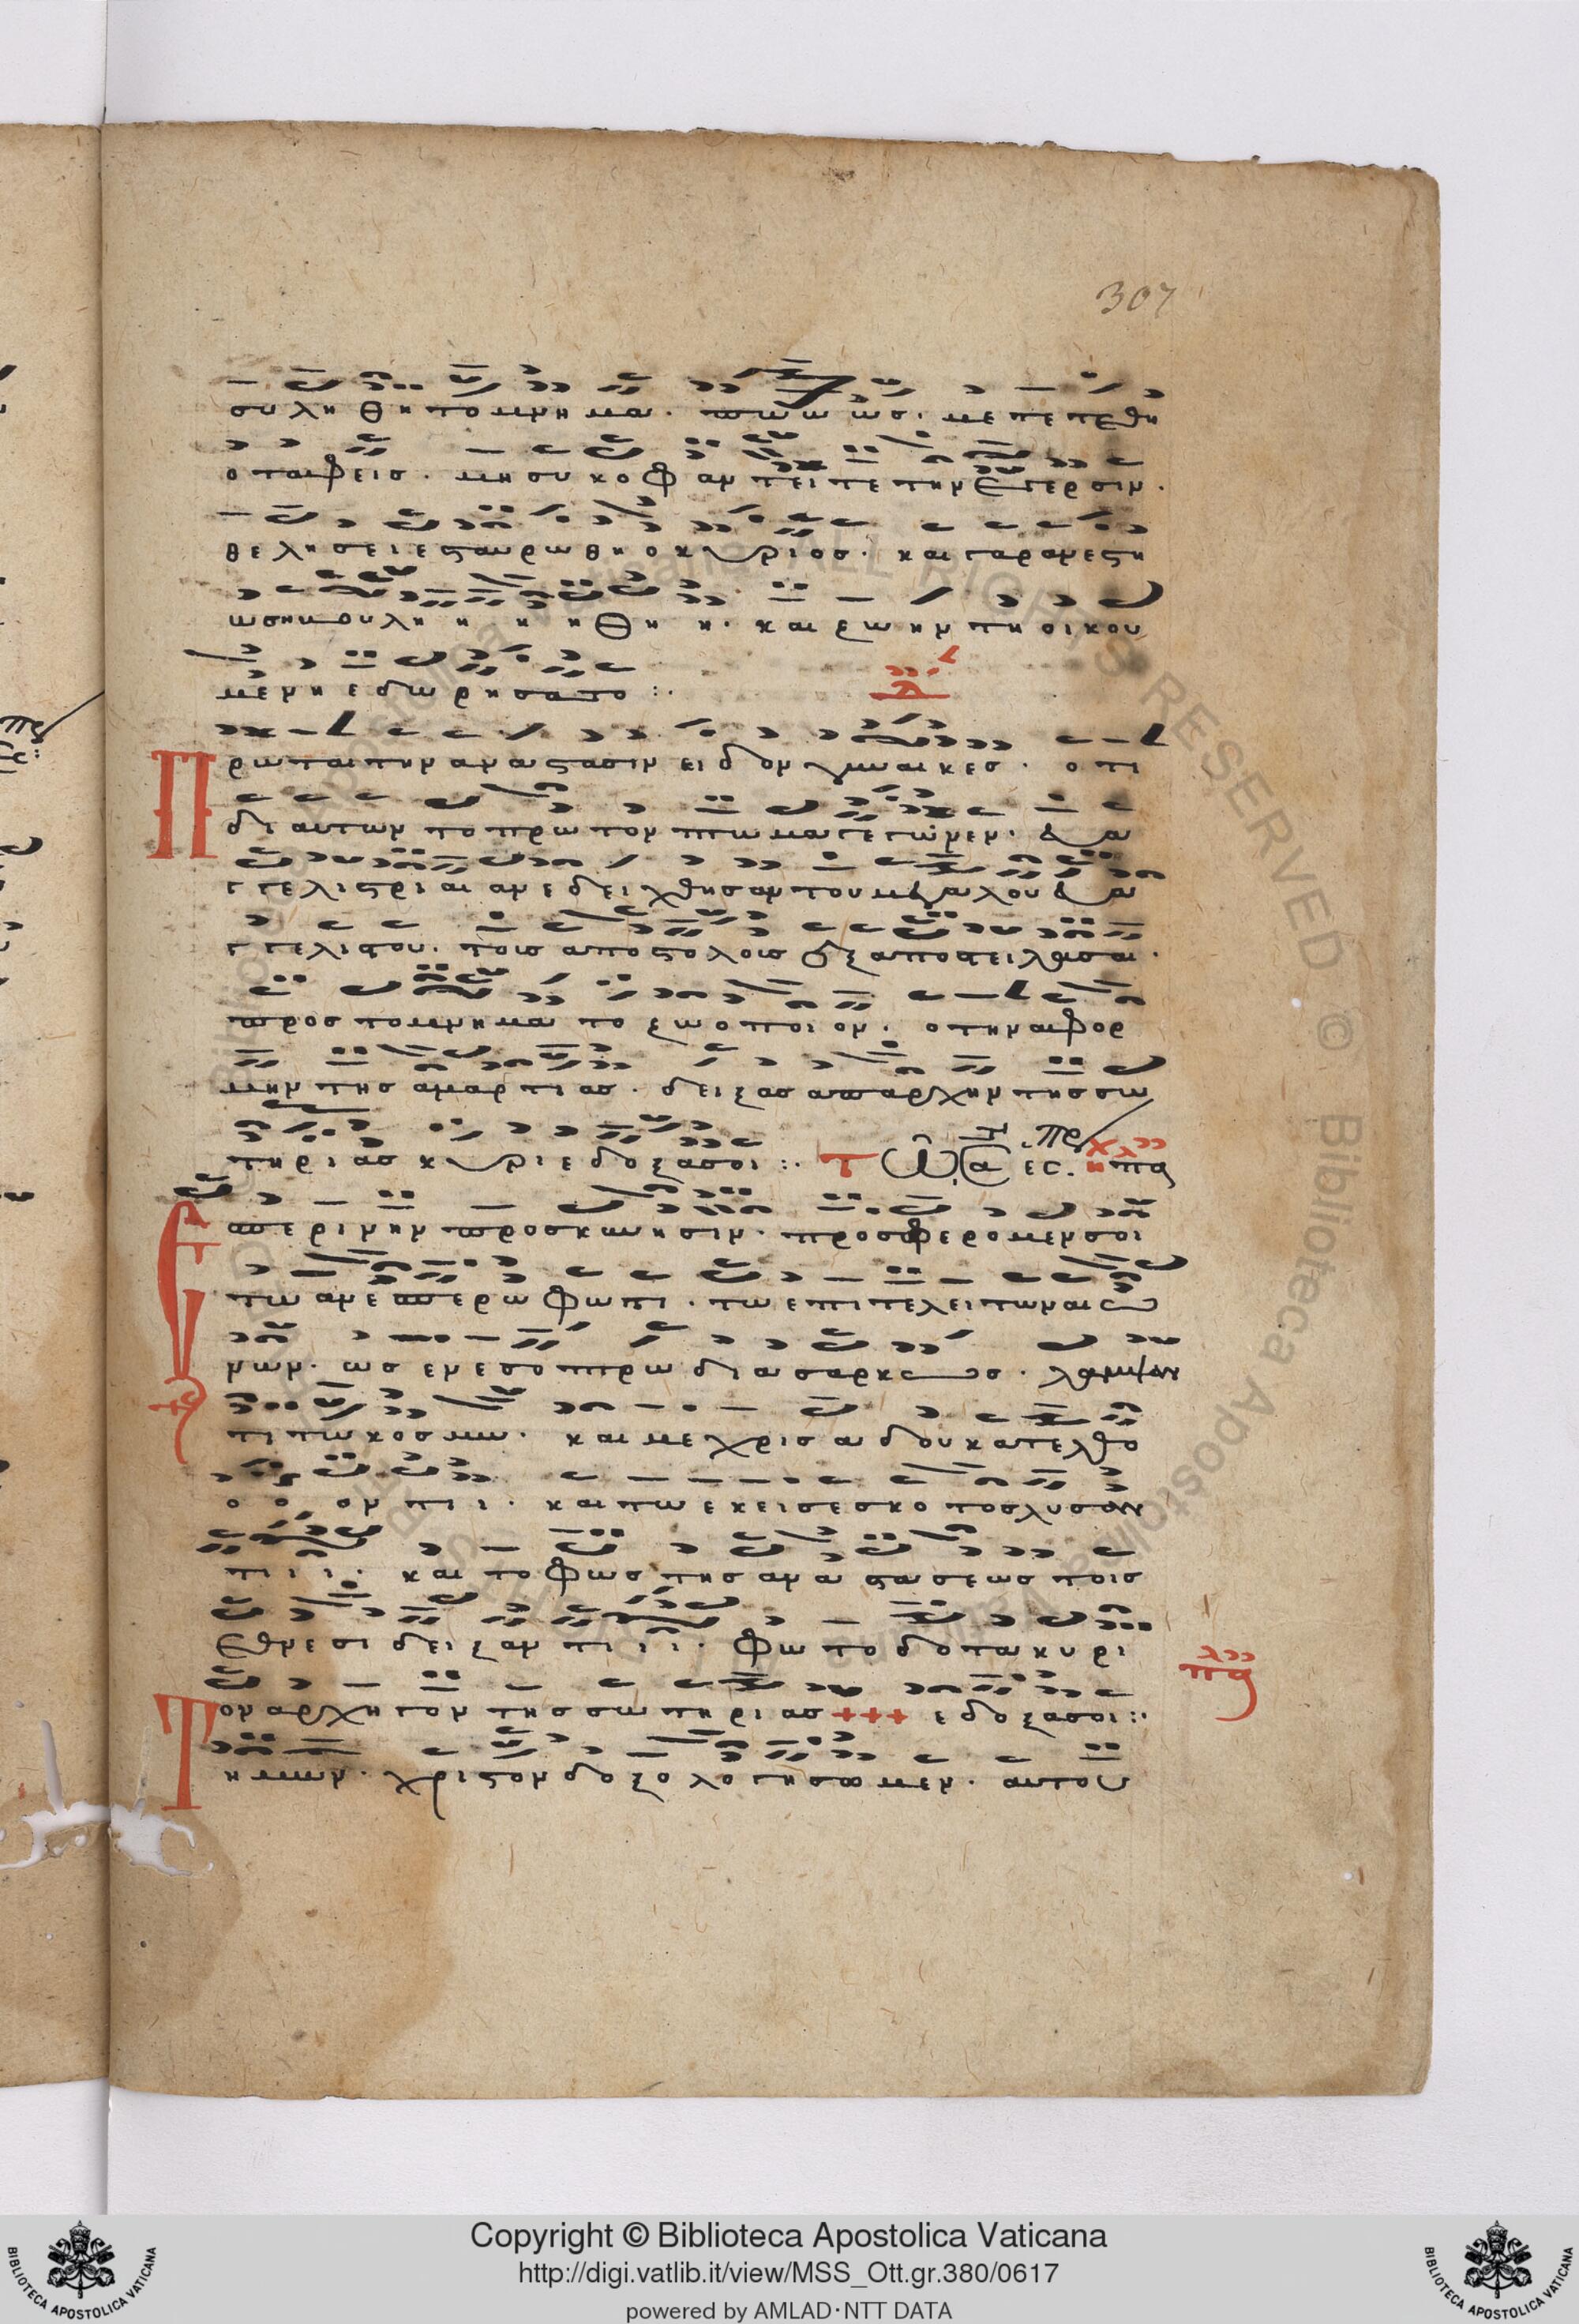 307
συληθη το μνημα. πωωω ως. με πε πεδη
ο ταφεις. μη συκοφαντειτε την εγερσιν.
θελησει εσταυρωθη ο κυριος. και γαρ ανεστη
ως ηβουληηηηθηη. και ζωην τη οικου
μενη εδωρησατο :.
Πρωται την αναστασιν ειδον γυναικες. οτι
δι αυτων το πρωτον πτωμα γεγωνεν. ευα
γγελιστριαι ανεδειχθησαν του μεγαλου ευα
γγελιστου. τοις αποστολοις εξαποστειλας αι.
προς το μνημα το ζωοποιον. ο την αφορ
μην της αμαρτιας. δειξας απαρχην της σω
τηριας κυριε δοξα σοι :.
Εσπερινην προσκυνησιν. προσφερομεν σοι
τω ανεσπερω φωτι. τω επι τελει των αιω
νων. ως εν εσοπτρω δια σαρκος. λαμψαν
τι τω κοσμω. και μεχρις αδου κατελθο
οοοντιι. και το εκεισε σκοτος λυσαν
τιιι. και το φως της αναστασεως τοις
εθνεσι δειξαντιιι. φωτοδοτα κυρι
ε δοξα σοι :.
Τον αρχηγον της σωτηριας +++
ημων. χριστον δοξολογησωμεν. αυτου
Copyright © Biblioteca Apostolica Vaticana
http://digi.vatlib.it/view/MSS_Ott.gr.380/0617
powered by AMLAD·NTT DATA
BIBLIOTECA APOSTOLICA VATICANA
BIBLIOTECA APOSTOLICA VATICANA